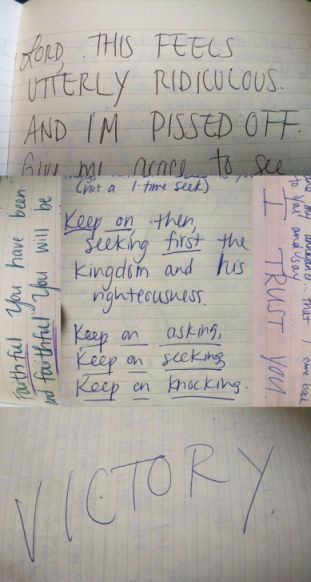 LORD, THIS FEELS
UTTERLY RIDICULOUS.
AND I'M PISSED OFF.
Give me grace to see
(not a 1-time seek)
Keep on, then,
seeking first the
kingdom and his
righteousness.
Keep on asking,
Keep on seeking
Keep on knocking.
Faithful you have been
and faithful you will be
that I come back
to you and say
I TRUST YOU.
VICTORY.